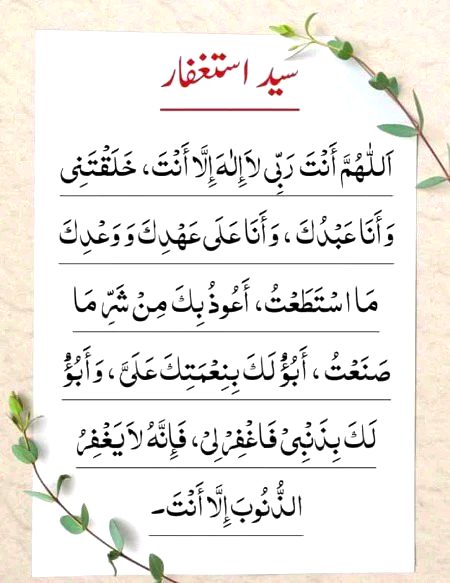 سید استغفار
اَللّٰهُمَّ أَنْتَ رَبِّی لَاۤإِلٰهَ إِلَّا أَنْتَ، خَلَقْتَنِی
وَأَنَا عَبْدُكَ، وَأَنَا عَلَی عَهْدِكَ وَوَعْدِكَ
مَا اسْتَطَعْتُ، أَعُوذُ بِكَ مِنْ شَرِّ مَا
صَنَعْتُ، أَبُؤْ لَكَ بِنِعْمَتِكَ عَلَیَّ، وَأَبُؤْ
لَكَ بِذَنْبِیْ فَاغْفِرْلِیْ، فَإِنَّهُ لَا یَغْفِرُ
الذُّنُوبَ إِلَّا أَنْتَ۔